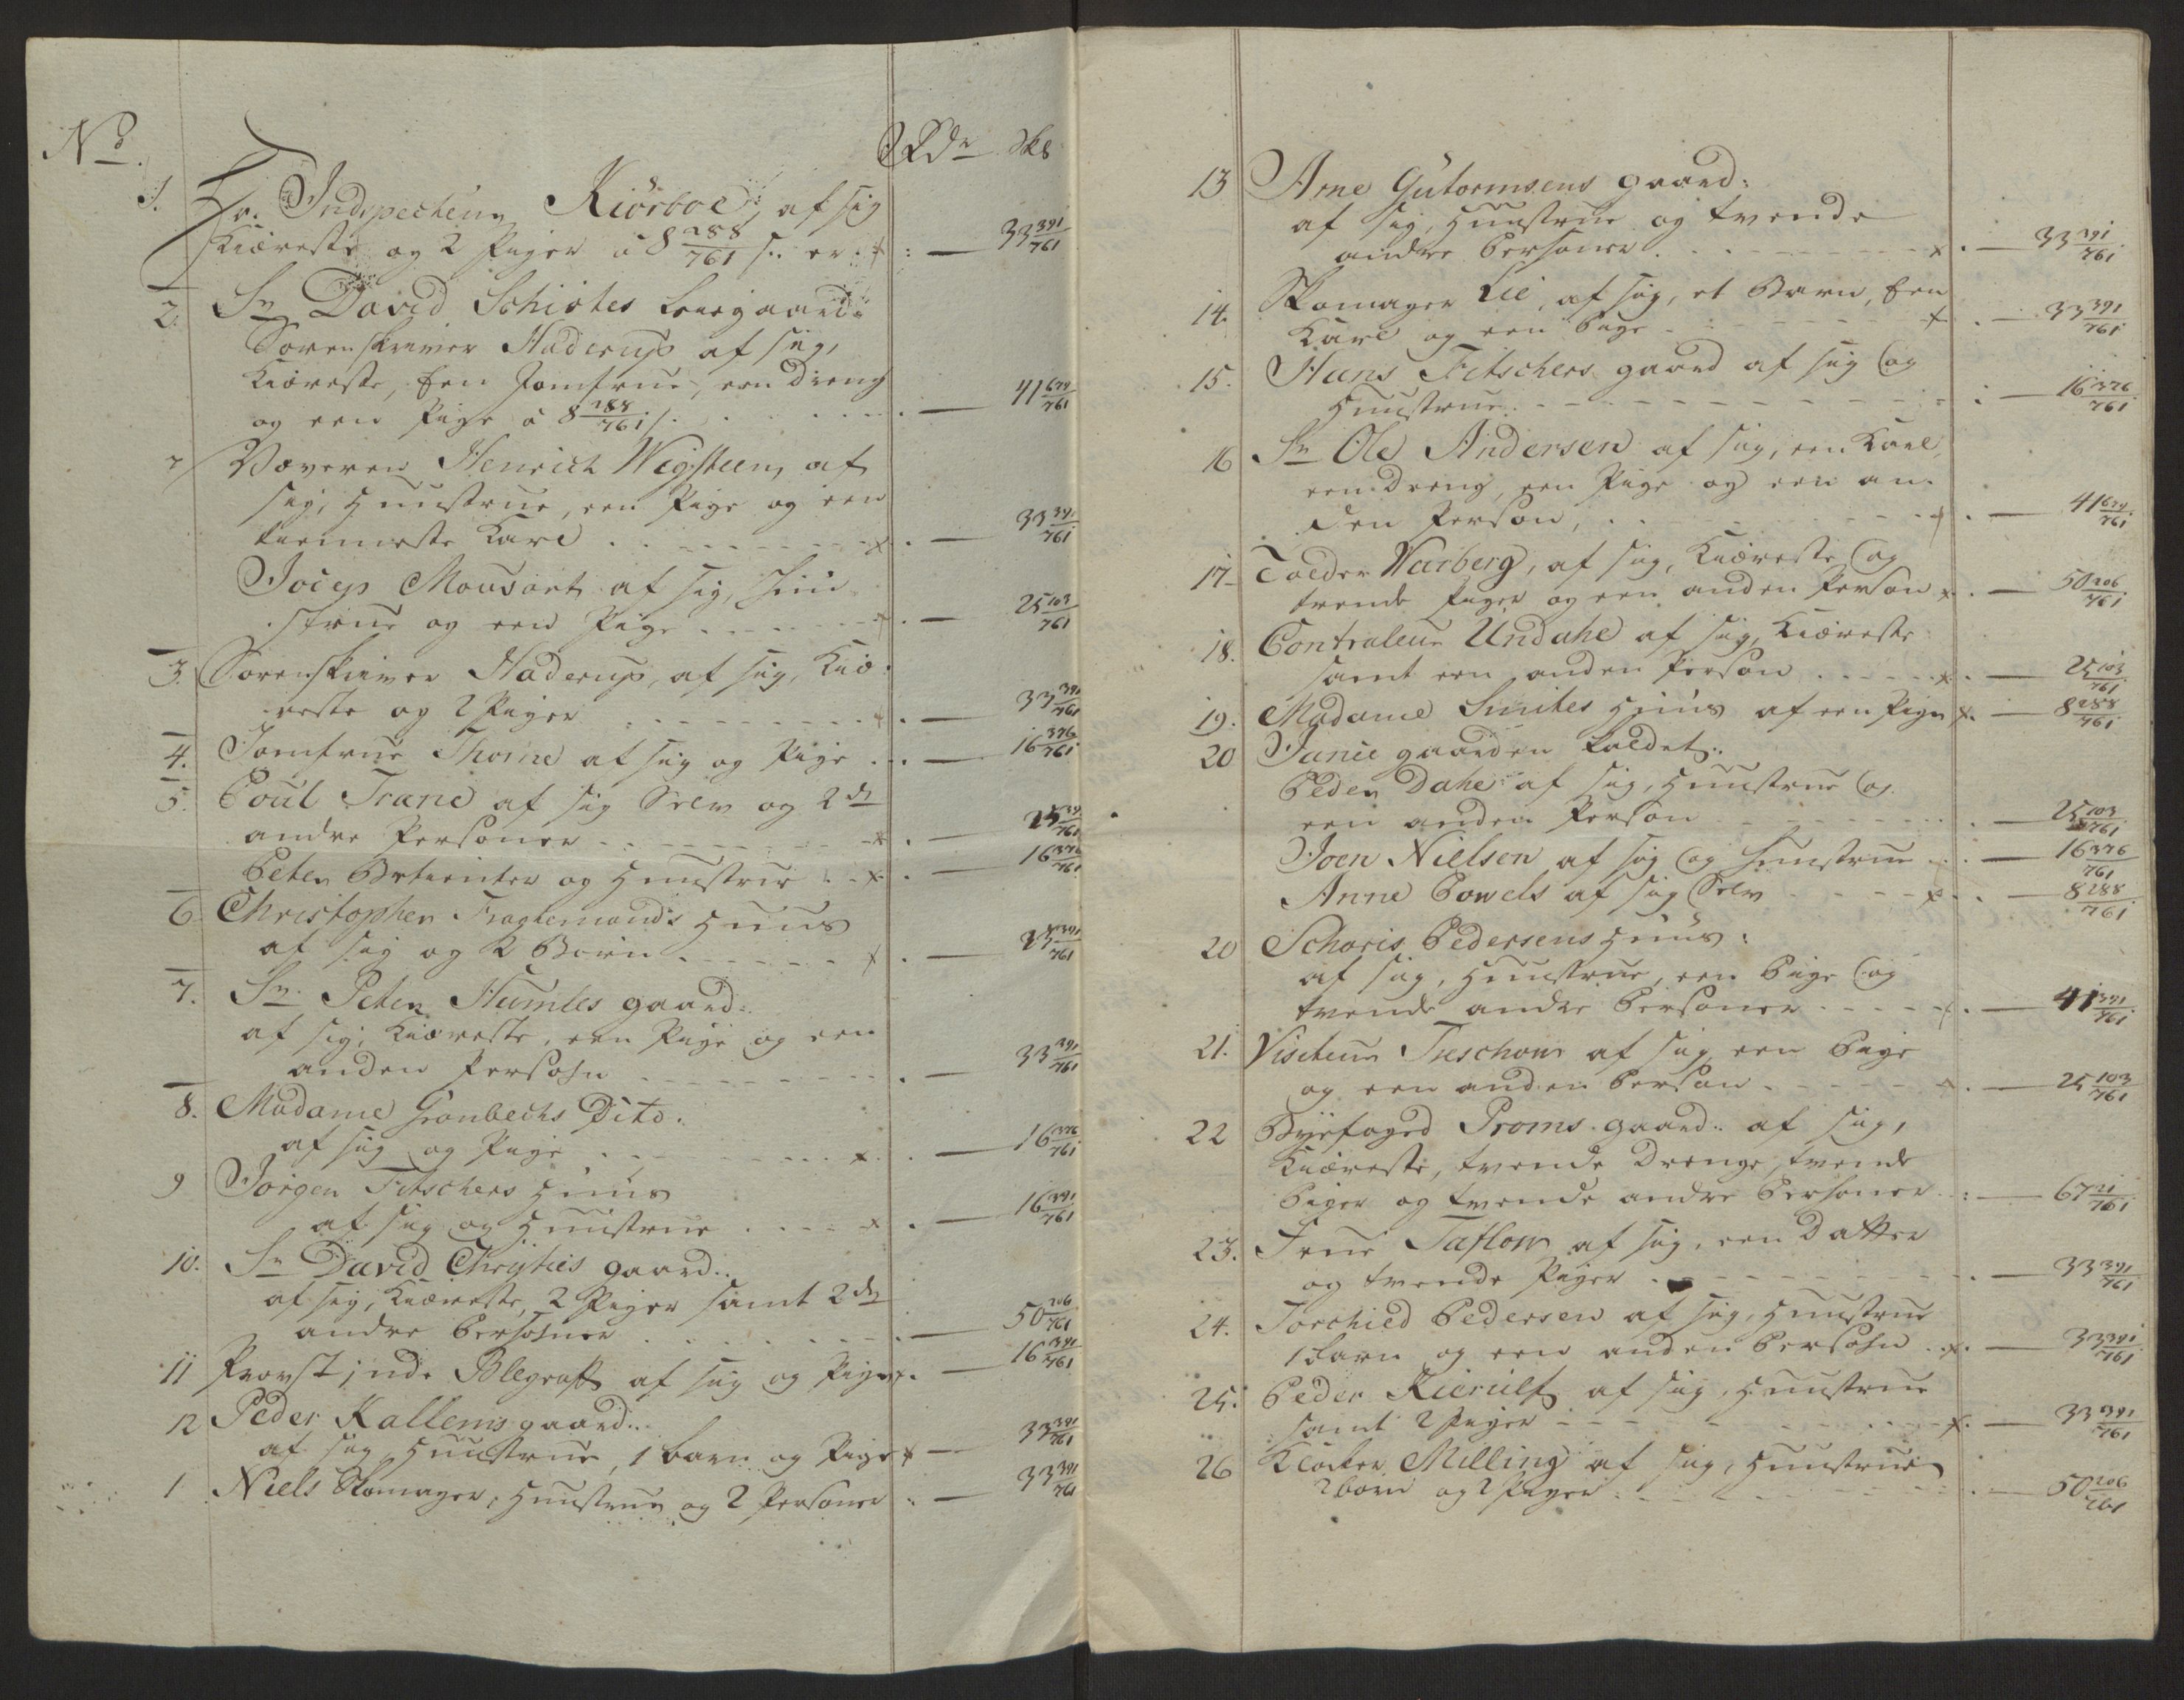 No. Rdr Sk8
1. Hr. Inspecteur Kiörboe, af sig
Kiæreste og 2 Piger á 8 288/761 s. er x : — 33 391/761
2. Sr David Schiötes Leiegaard:
Sorenskriver Haderup af sig,
Kiæreste, Een Jomfrue, een dreng
og een Pige á 8 288/761 s. . — 41 679/761
Væveren Henrich Wigsteen, af
sig, Huustrue, een Pige og een
Karl x . — 33 391/761
Jocep Mousart af sig, Huu
strue og een Pige x . — 25 103/761
3. Sorenskriver Haderup, af sig, Kiæ-
reste og 2 Piger x . — 33 391/761
4. Jomfrue Thorne af sig og Pige . — 16 376/761
5. Poul Trane af sig Selv og 2de
andre Personer x . — 25 391/761
Peter og Huustrue x . — 16 376/761
6. Christopher Fragtemands Huus
af sig og 2 Börn x . — 25 391/761
7. Sr. Peter Humles gaard:
af sig, Kiæreste, een Pige og een
anden Persohn . — 33 391/761
8. Madame Gronbechs Dito.
af sig og Pige x . — 16 376/761
9 Jörgen Fitschers Huus
af sig og Huustrue x . — 16 391/761
10. Sr David Chrysties gaard.
af sig, Kiæreste, 2 Piger samt 2de
andre Persohner . — 50 206/761
11 Provstinde Blegraft af sig og Pige x . — 16 391/761
12 Peder Kallems gaard.
af sig, Huustrue, 1 barn og Pige x — 33 391/761
1 Niels Skomager, Huustrue og 2 Personer . — 33 391/761
13 Arne Gutormsens gaard:
af sig, Huustrue og tvende
andre Personer x . — 33 391/761
14. Skomager Lie, af sig, et Barn, Een
Karl og een Pige x . — 33 391/761
15. Hans Fitschers gaard af sig og
Huustrue : — 16 376/761
16 Sr Ole Andersen af sig, een Karl,
een Dreng, een Pige og een an-
den Person, x . — 41 679/761
17 Tolder Warberg, af sig, Kiæreste og
trende Piger og een anden Person x . — 50 206/761
18. Contraleur Undahl af sig, Kiæreste
samt een anden Person x . — 25 103/761
19. Madame Smites Huus af een Pige x . — 8 288/761
20 Janie gaarden kaldet:
Peder Dahl af sig, Huustrue og
een anden Person . — 25 103/761
Joen Nielsen af sig og Huustrue . — 16 376/761
Anne Powels af sig Selv x . — 8 288/761
20 Schoris Pedersens Huus:
af sig, Huustrue, een Pige og
tvende andre Personer x . — 41 391/761
21. Visiteur Treschow af sig, een Pige
og een anden Person x . — 25 103/761
22 Byefoged Proms gaard: af sig,
Kiæreste, tvende Drenge, tvende
Piger og tvende andre Personer : — 67 21/761
23. Frue Taflow af sig, een Datter
og tvende Piger . — 33 391/761
24. Torchild Pedersen af sig, Huustrue
1 barn og een anden Persohn x . — 33 391/761
25. Peder Kierulf af sig, Huustrue
samt 2 Piger x . — 33 391/761
26 Klocker Milling af sig, Huustrue
2 börn og 2 Piger . — 50 206/761